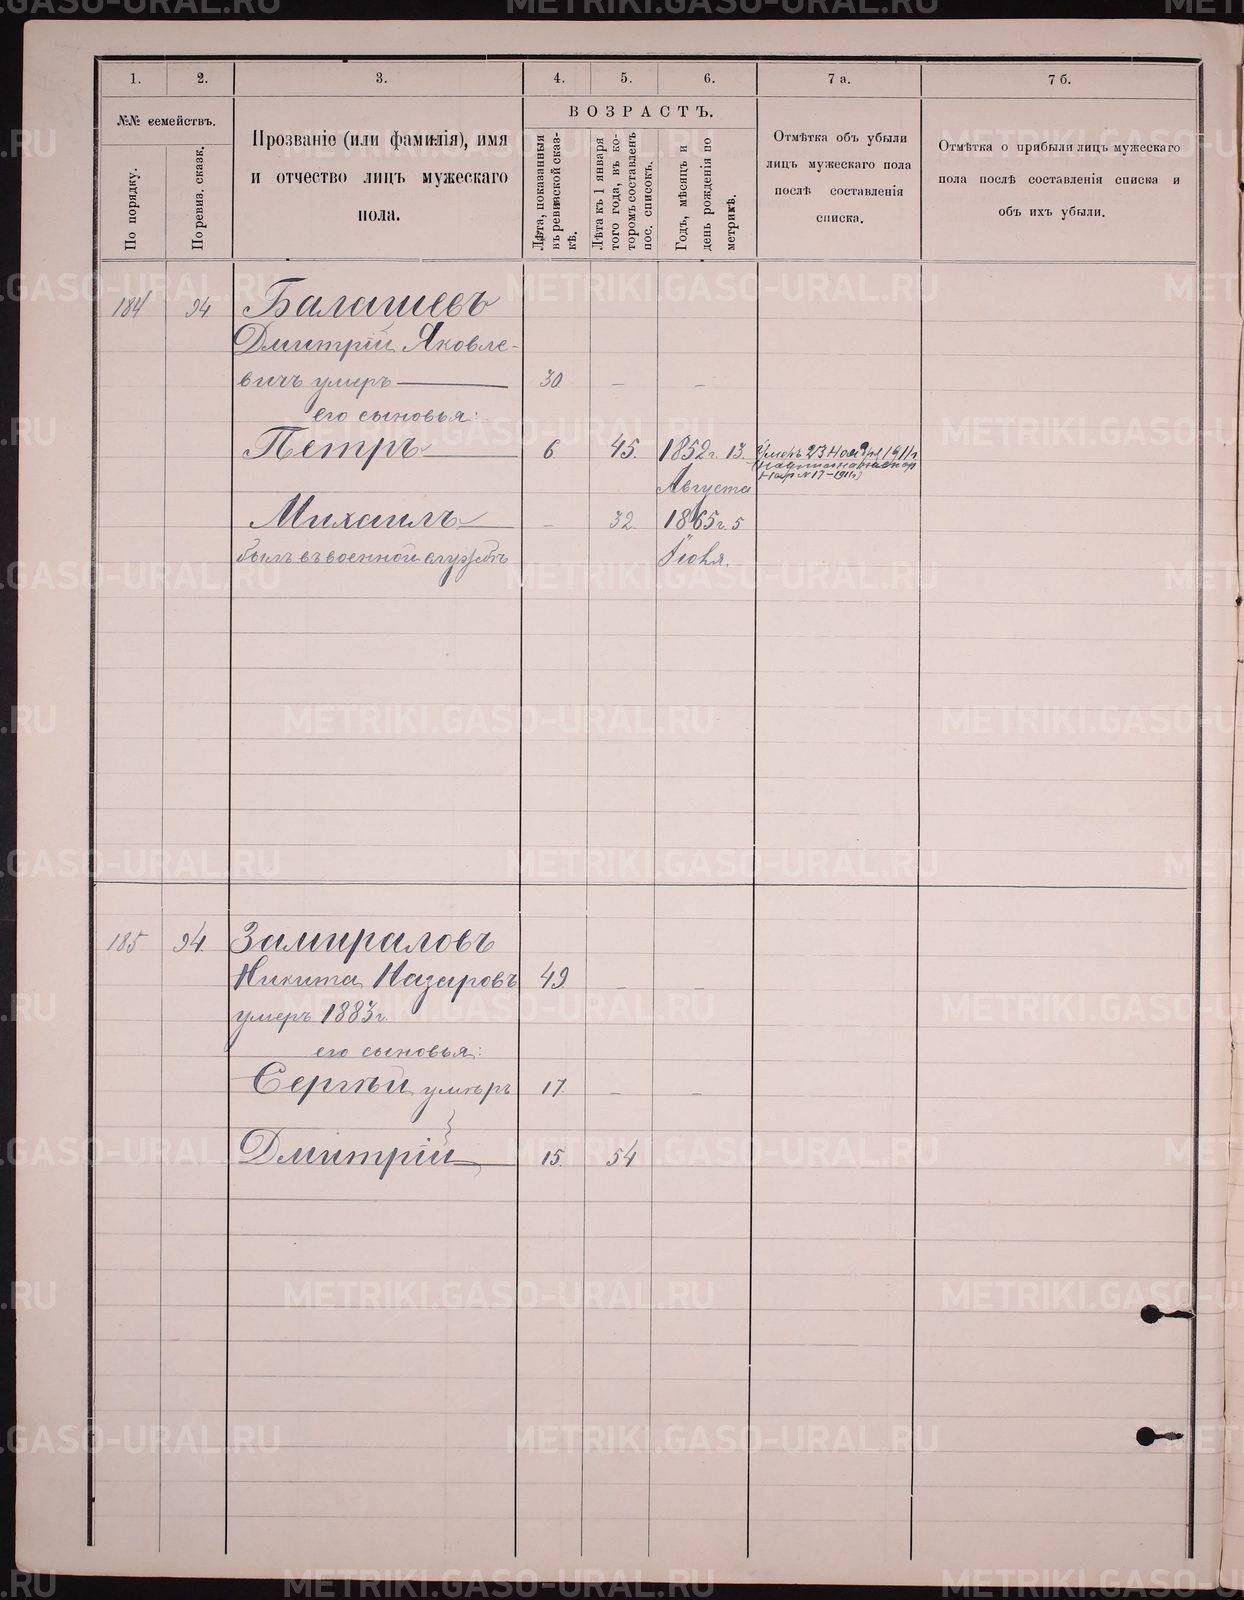 1.
2.
3.
4.
5.
6.
7 а.
7 б.
№№ семействъ.
По порядку.
По ревиз. сказк.
Прозваніе (или фамилія), имя
и отчество лицъ мужескаго
пола.
ВОЗРАСТЪ.
Лѣта, показанныя
въ ревизской сказ-
кѣ.
Лѣта къ 1 января
того года, въ ко-
торомъ составленъ
пос. списокъ.
Годъ, мѣсяцъ и
день рожденія по
метрикѣ.
Отмѣтка объ убыли
лицъ мужескаго пола
послѣ составленія
списка.
Отмѣтка о прибыли лицъ мужескаго
пола послѣ составленія списка и
объ ихъ убыли.
184 94 Балашевъ
Дмитрій Яковле-
вичъ умеръ 30 — —
его сыновья:
Петръ 6 45. 1852 г. 13. Умеръ 23 Ноября 1911 г.
Августа
Михаилъ — 32. 1865 г. 5
былъ въ военной службѣ Іюля.
185 94. Замираловъ
Никита Назаровъ 49 — —
умеръ 1883 г.
его сыновья:
Сергѣй умеръ 17. — —
Дмитрій 15. 54
METRIKI.GASO-URAL.RU